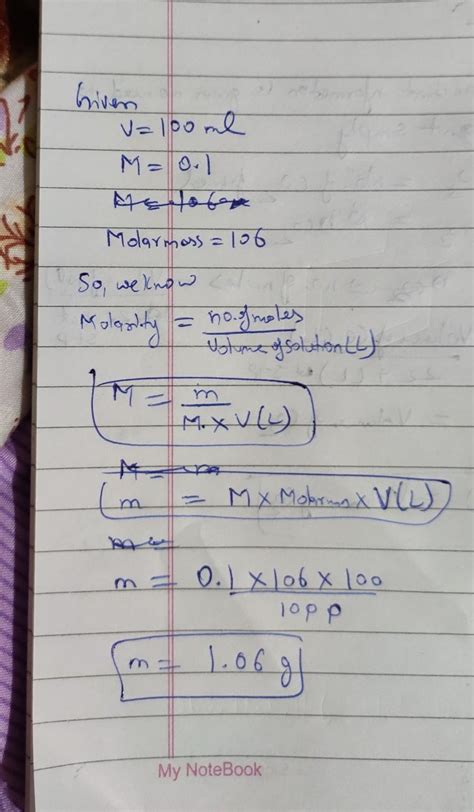 Given
V = 100 ml
M = 0.1
M = 106
Molarmass = 106
So, we know
Molarity = no. of moles / Volume of solution (L)
M = m / M. × V(L)
M = m
m = M × Molarmass × V(L)
m =
m = 0.1 × 106 × 100 / 1000
m = 1.06 g
My NoteBook